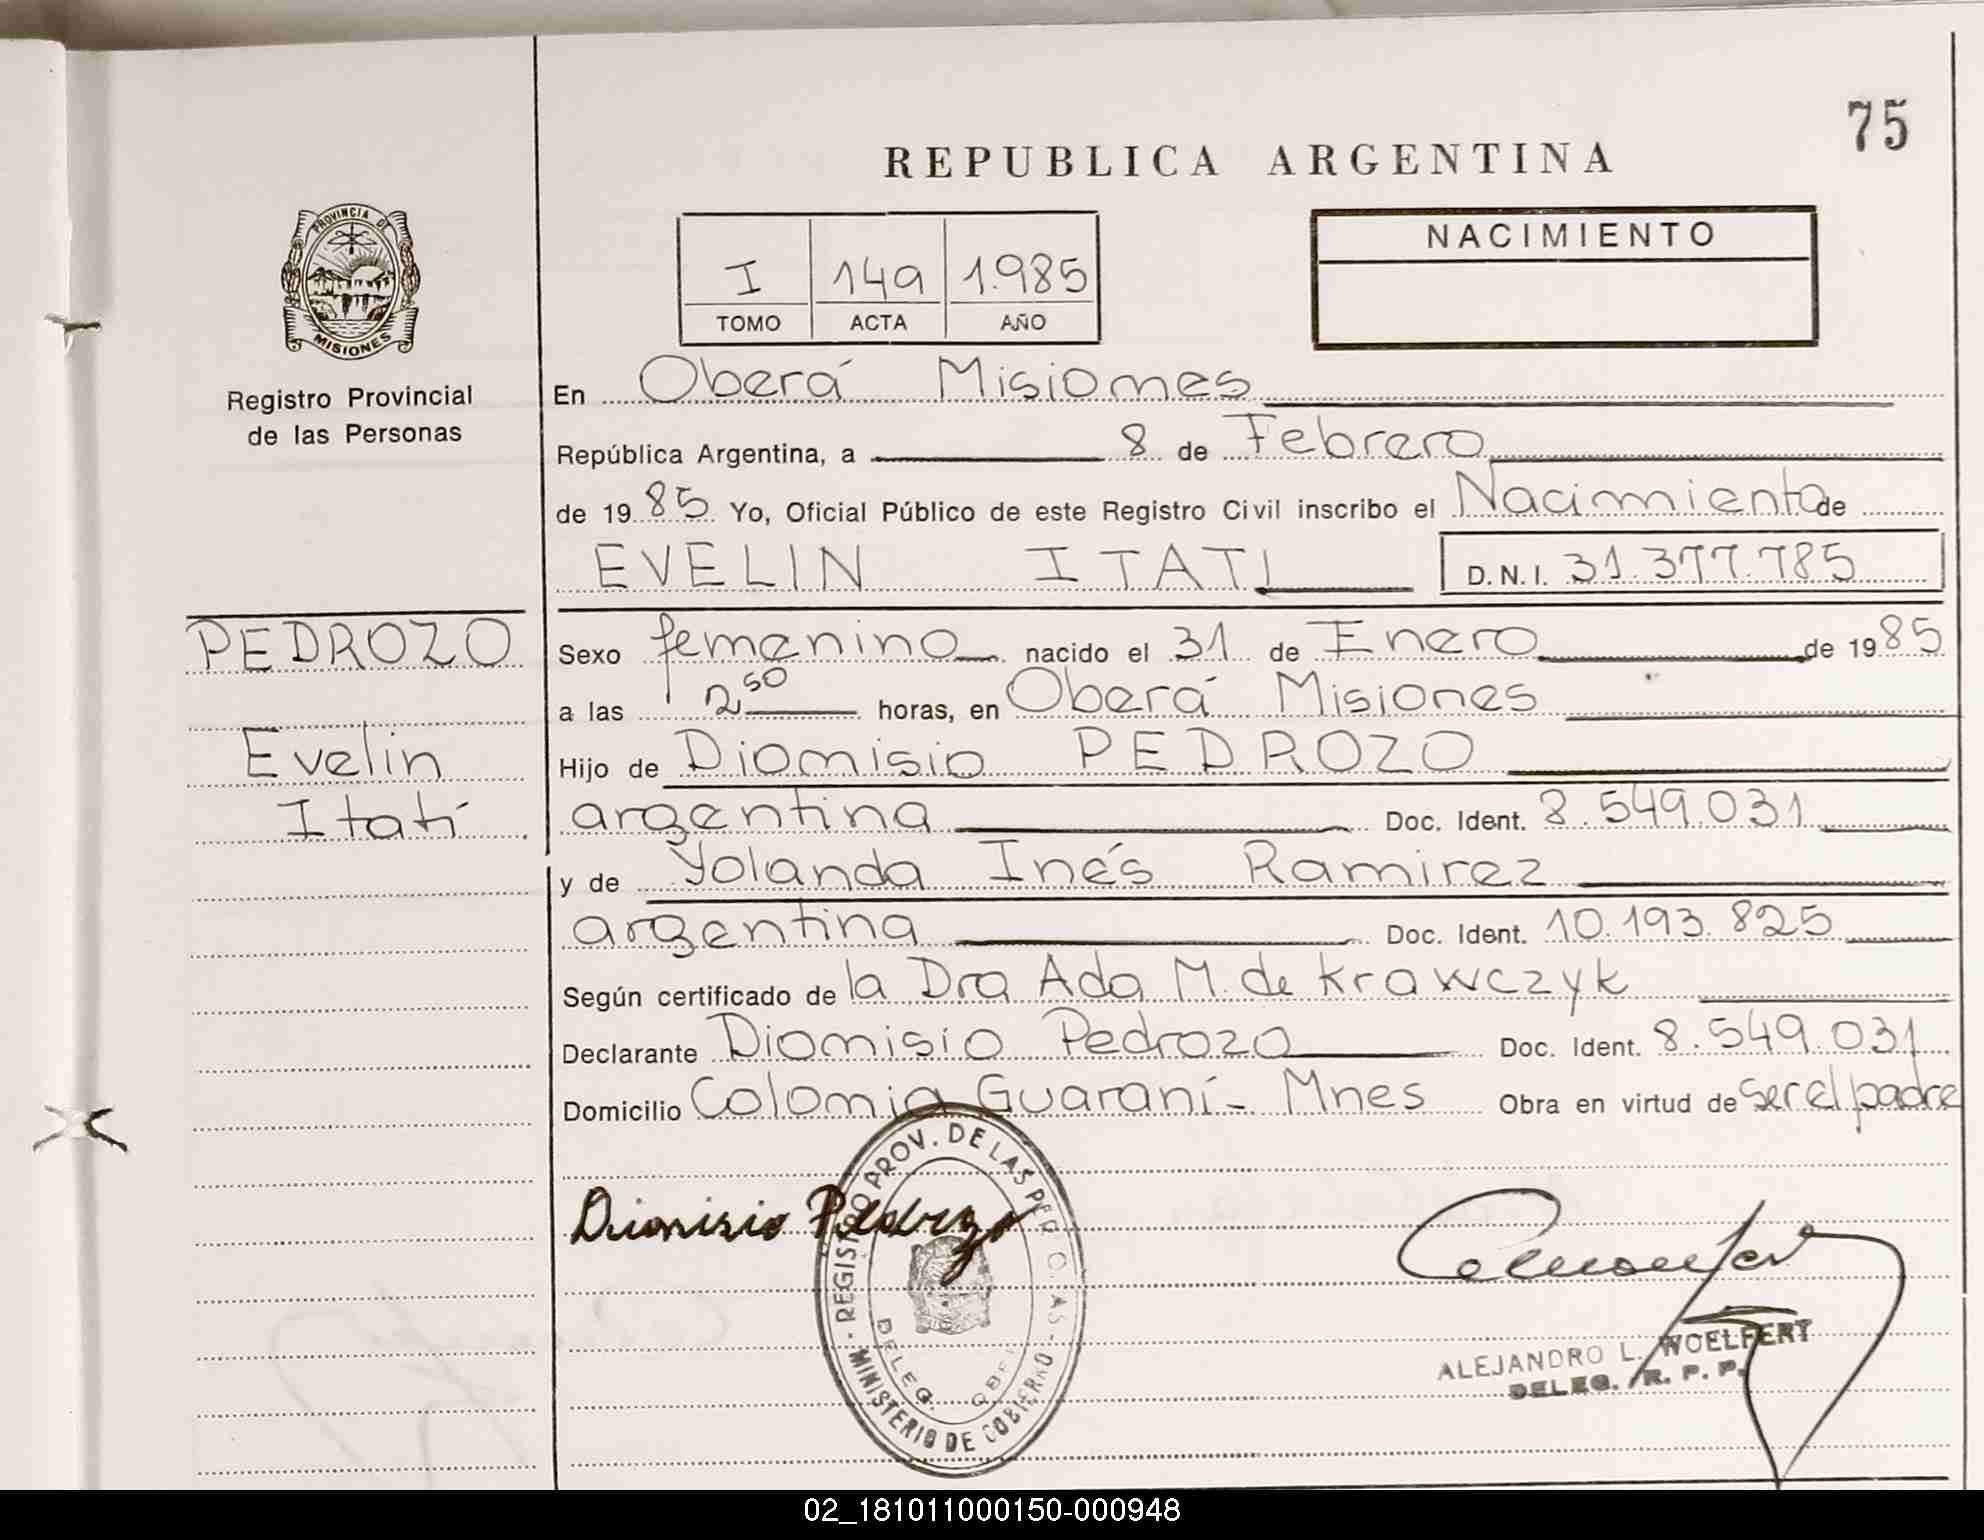 75
REPUBLICA ARGENTINA
PROVINCIA DE
MISIONES
Registro Provincial
de las Personas
I 149 1.985
TOMO ACTA AÑO
NACIMIENTO
En Oberá Misiones
República Argentina, a 8 de Febrero
de 1985 Yo, Oficial Público de este Registro Civil inscribo el Nacimiento de
EVELIN ITATI D.N.I. 31.377.785
PEDROZO
Evelin
Itatí
Sexo femenino nacido el 31 de Enero de 1985
a las 2,50 horas, en Oberá Misiones
Hijo de Dionisio PEDROZO
argentina Doc. Ident. 8.549.031
y de Yolanda Inés Ramirez
argentina Doc. Ident. 10.193.825
Según certificado de la Dra Ada M. de Krawczyk
Declarante Dionisio Pedrozo Doc. Ident. 8.549.031
Domicilio Colonia Guaraní - Mnes Obra en virtud de ser el padre
Dionisio Pedrozo
REGISTRO PROV. DE LAS PERSONAS
MINISTERIO DE GOBIERNO
DELEG.
ALEJANDRO L. WOELFERT
DELEG. R. P. P.
02_181011000150-000948